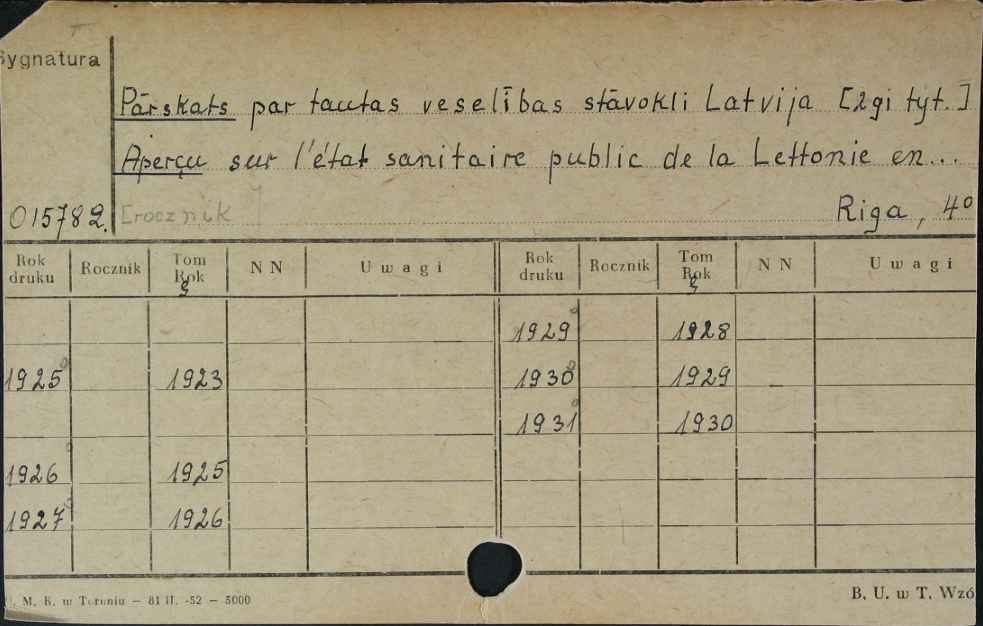 Sygnatura
Pārskats par tautas veselības stāvokli Latvija [2gi tyt.]
Aperçu sur l'état sanitaire public de la Lettonie en...
015782. [rocznik] Riga, 4°
Rok druku Rocznik Tom Rok NN Uwagi Rok druku Rocznik Tom Rok NN Uwagi
1929 1928
1925 1923 1930 1929
1931 1930
1926 1925
1927 1926
M. K. w Toruniu — 81 II. -52 — 5000 B. U. w T. Wzó